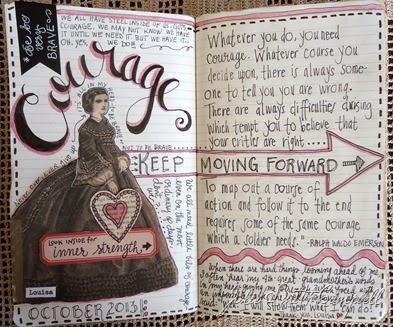 WE ALL HAVE STEEL INSIDE OF US.
COURAGE. WE MAY NOT KNOW WE HAVE
IT UNTIL WE NEED IT BUT WE HAVE IT...
OH, YES, WE DO!!!
BRAVE
Courage
NOT TO BE BRAVE
KEEP
We all need little bits of courage
even on the most
ordinary of days
LOOK INSIDE for
inner strength
Louisa
OCTOBER 2013
Whatever you do, you need
courage. Whatever course you
decide upon, there is always some-
one to tell you you are wrong.
There are always difficulties arising
which tempt you to believe that
your critics are right....
MOVING FORWARD
To map out a course of
action and follow it to the end
requires some of the same courage
which a soldier needs." -RALPH WALDO EMERSON
When there are hard things looming ahead of me
I often hear my great grandmother's words
in my head
"I will show them what I can do!"